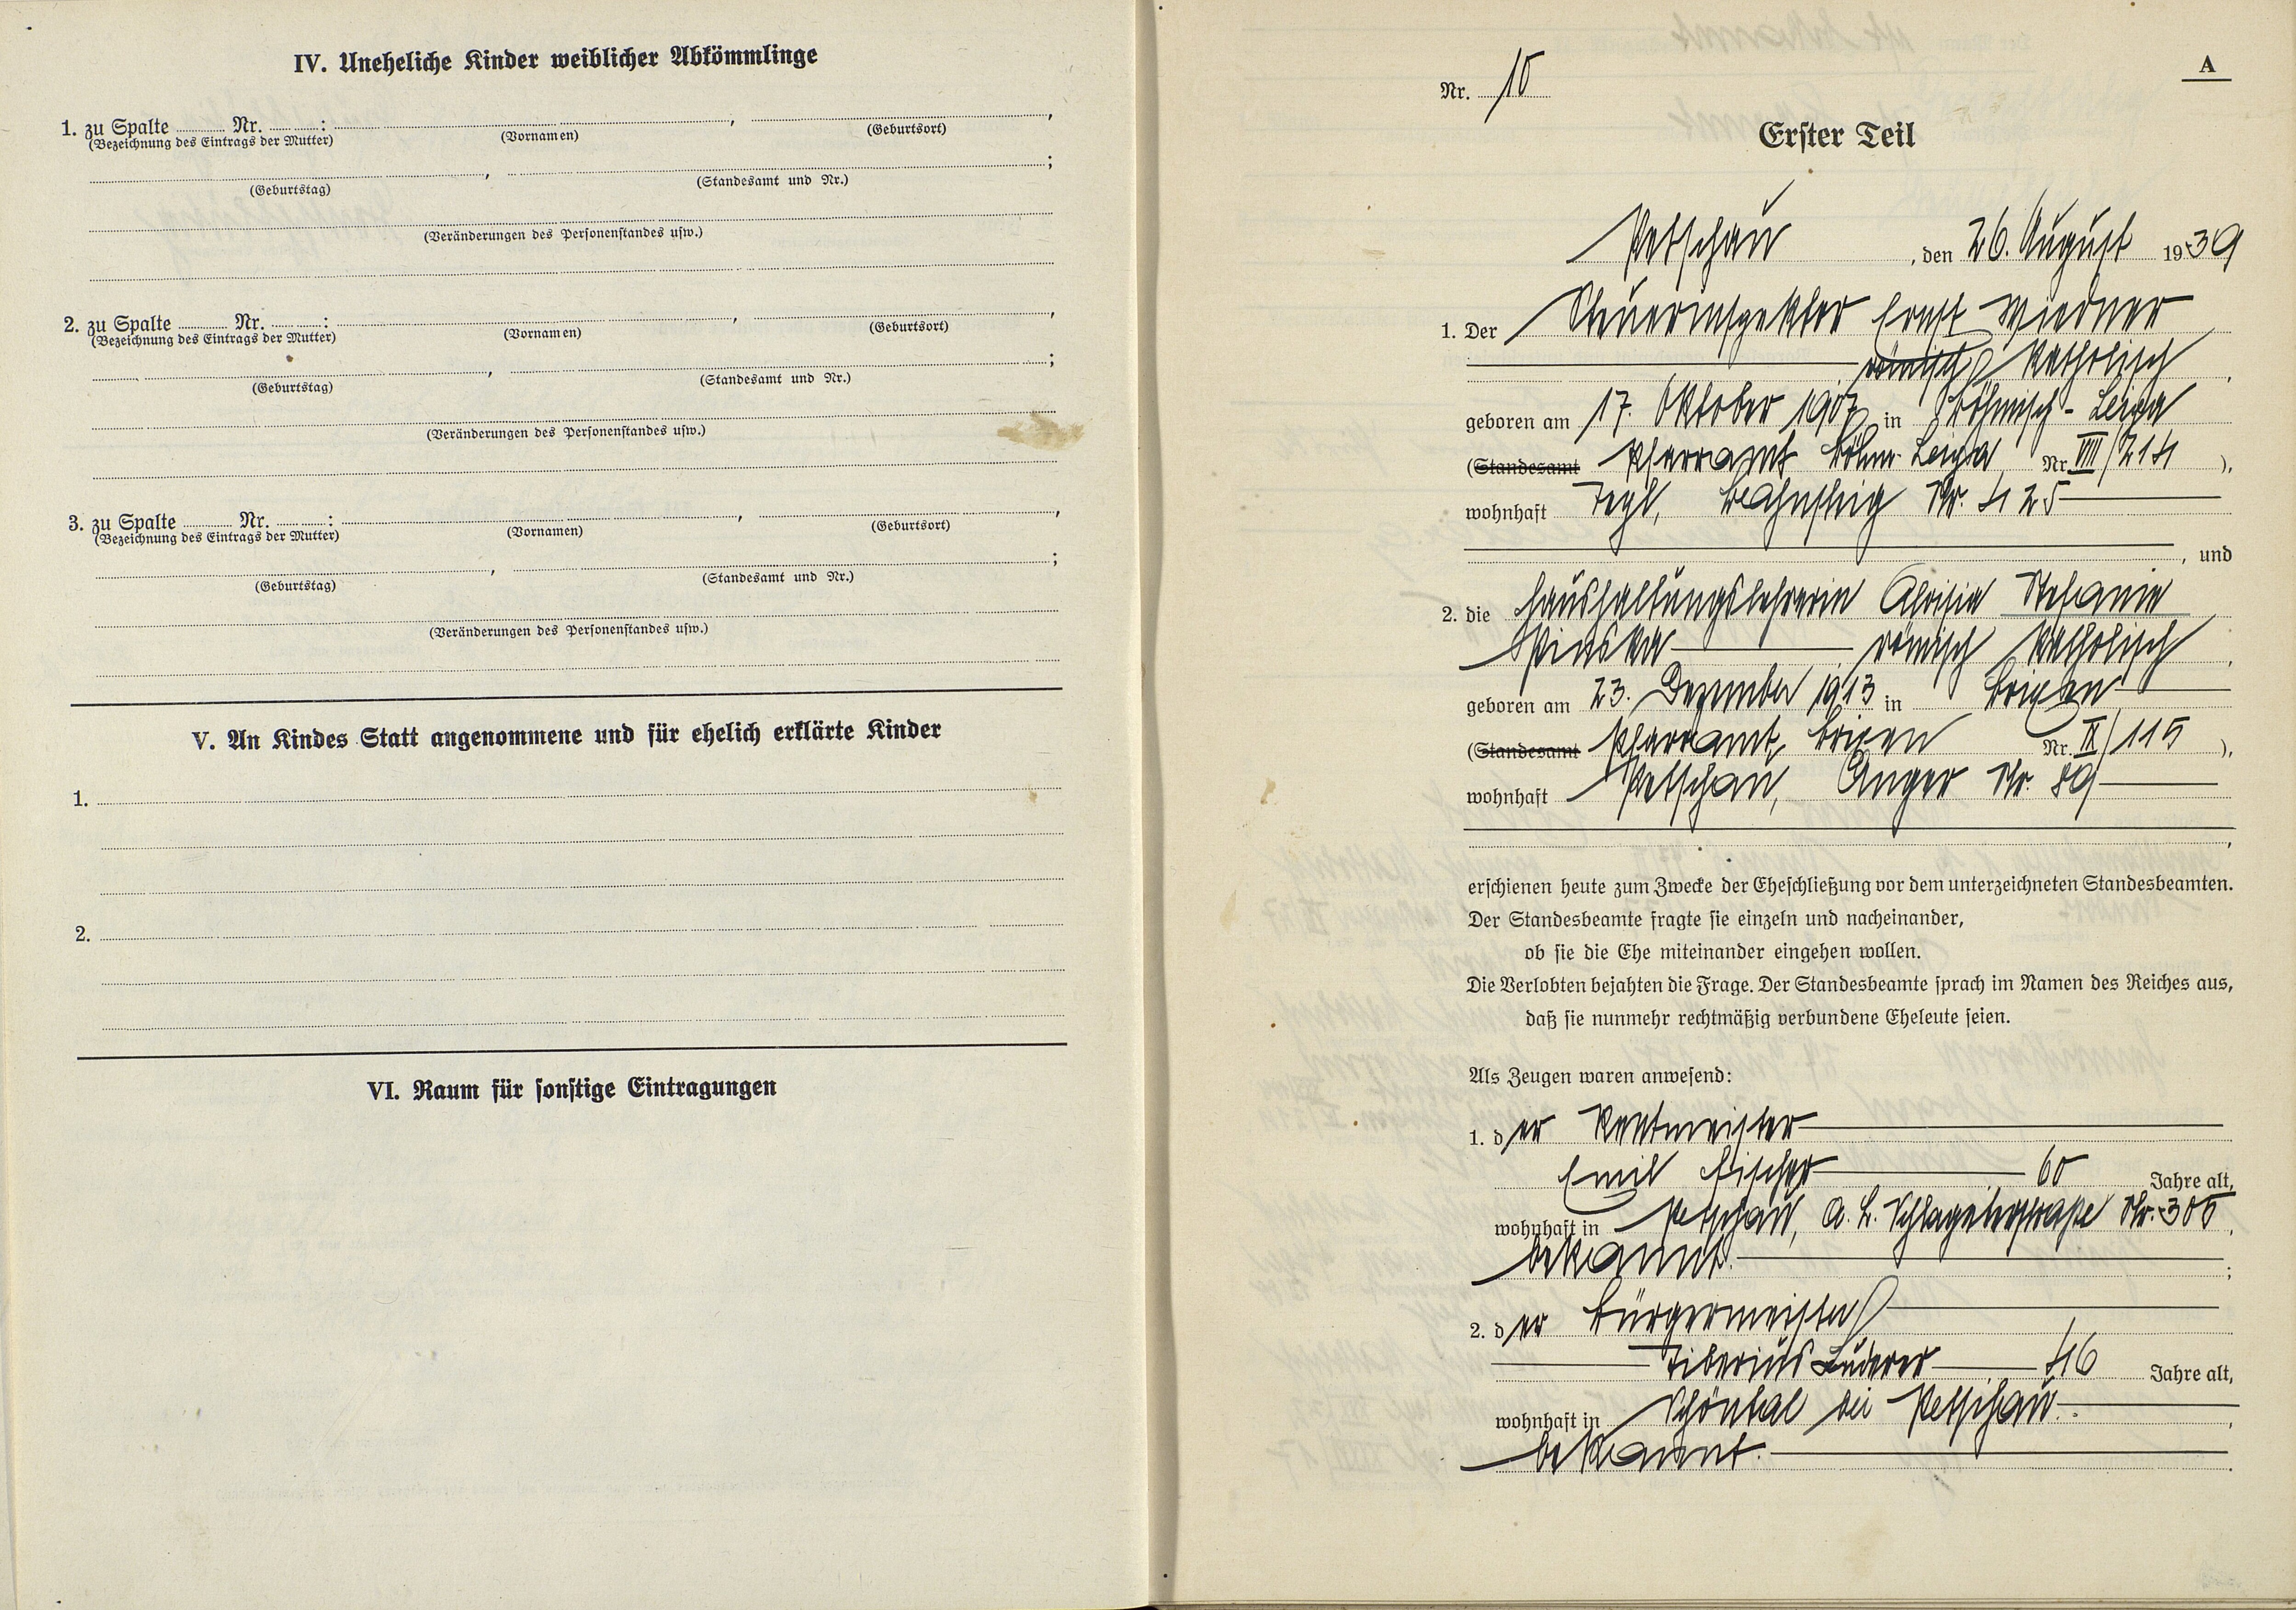 IV. Uneheliche Kinder weiblicher Abkömmlinge
1. zu Spalte ........ Nr. ........ : ........ , ........ ,
(Bezeichnung des Eintrags der Mutter) (Vornamen) (Geburtsort)
........ , ........ ;
(Geburtstag) (Standesamt und Nr.)
(Veränderungen des Personenstandes usw.)
2. zu Spalte ........ Nr. ........ : ........ , ........ ,
(Bezeichnung des Eintrags der Mutter) (Vornamen) (Geburtsort)
........ , ........ ;
(Geburtstag) (Standesamt und Nr.)
(Veränderungen des Personenstandes usw.)
3. zu Spalte ........ Nr. ........ : ........ , ........ ,
(Bezeichnung des Eintrags der Mutter) (Vornamen) (Geburtsort)
........ , ........ ;
(Geburtstag) (Standesamt und Nr.)
(Veränderungen des Personenstandes usw.)
V. An Kindes Statt angenommene und für ehelich erklärte Kinder
1.
2.
VI. Raum für sonstige Eintragungen
A
Nr. 10
Erster Teil
Petschau , den 26. August 1939
1. Der Steuerinspektor Ernst Wiedner
römisch katholisch ,
geboren am 17. Oktober 1907 in Böhmisch-Leipa
(Standesamt Pfarramt Böhm. Leipa Nr. VIII/214 ),
wohnhaft Tepl, Bahnsteig Nr. 425
, und
2. die Haushaltungslehrerin Aloisia Stefanie
römisch katholisch ,
geboren am 23. Dezember 1913 in Brixen
(Standesamt Pfarramt Brixen Nr. IX/115 ),
wohnhaft Petschau, Anger Nr. 89
,
erschienen heute zum Zwecke der Eheschließung vor dem unterzeichneten Standesbeamten.
Der Standesbeamte fragte sie einzeln und nacheinander,
ob sie die Ehe miteinander eingehen wollen.
Die Verlobten bejahten die Frage. Der Standesbeamte sprach im Namen des Reiches aus,
daß sie nunmehr rechtmäßig verbundene Eheleute seien.
Als Zeugen waren anwesend:
1. der Rentmeister
Emil Fischer 60 Jahre alt,
wohnhaft in Petschau, A. L. Schlageterstraße Nr. 305 ,
bekannt. ;
2. der Bürgermeister
Tiberius Luderer 46 Jahre alt,
wohnhaft in Schöntal bei Petschau. ,
bekannt. .